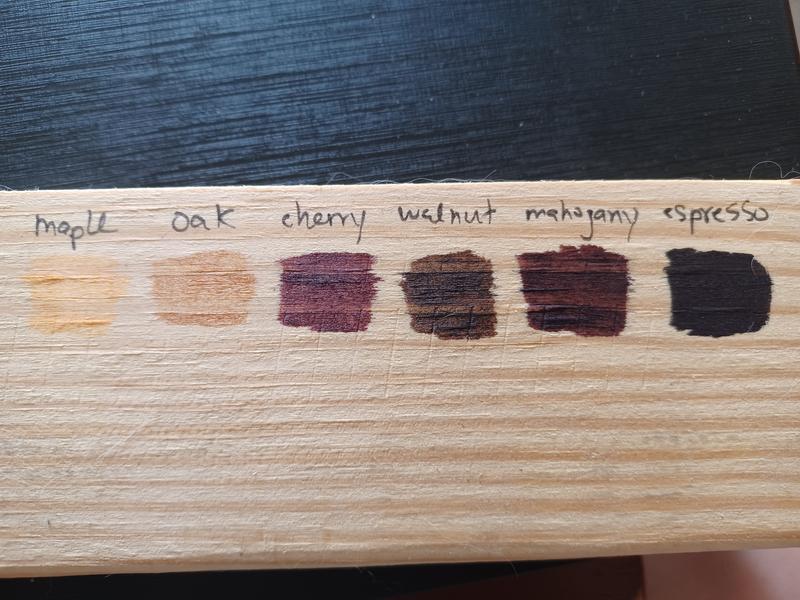 maple oak cherry walnut mahogany espresso